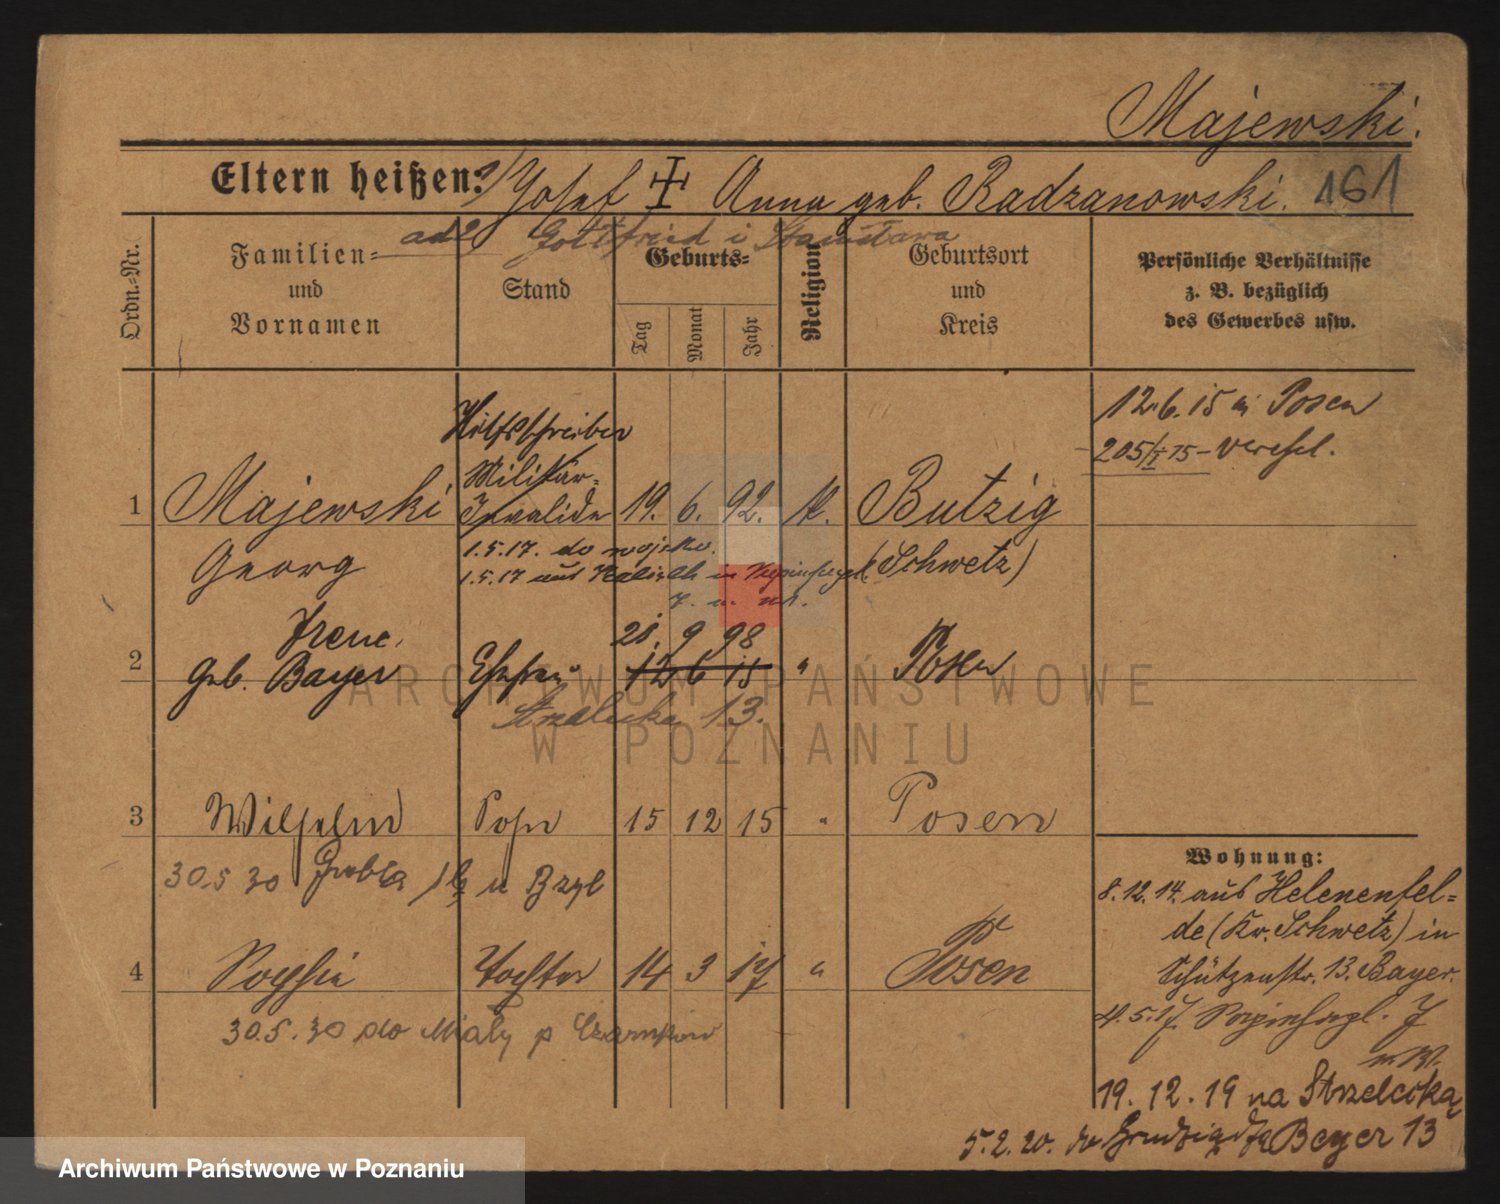 Majewski.
Eltern heißen: 1/ Josef ‡ Anna geb. Radzanowski. 161
ad 2) Gottfried i Stanisława
Ordn.-Nr.
Familien- und Vornamen
Stand
Geburts-
Tag
Monat
Jahr
Religion
Geburtsort und Kreis
Persönliche Verhältnisse
z. B. bezüglich
des Gewerbes usw.
12.6.15 in Posen
205/I 15 - verehel.
Hilfsschreiber
Militär-
1 Majewski Invalide 19. 6. 92. K. Butzig
Georg (Schwetz)
1.5.17. do wojsko.
1.5.17 aus Kalisch in
Irene, 21. 9 98
2 geb. Bayer Ehefrau 12 6 15 " Posen
Strzelecka 13.
3 Wilhelm Sohn 15 12 15 " Posen
30.5 30 Grobla
4 Sophie Tochter 14 3 17 " Posen
30.5.30 do Miały p Czarnków
Wohnung:
8.12.14. aus Helenenfel-
de (Kr. Schwetz) in
Schützenstr. 13. Bayer.
4.5.17.
19.12.19 na Strzelecką
5.2.20. do Grudziądza Beyer 13
ARCHIWUM PAŃSTWOWE
W POZNANIU
Archiwum Państwowe w Poznaniu